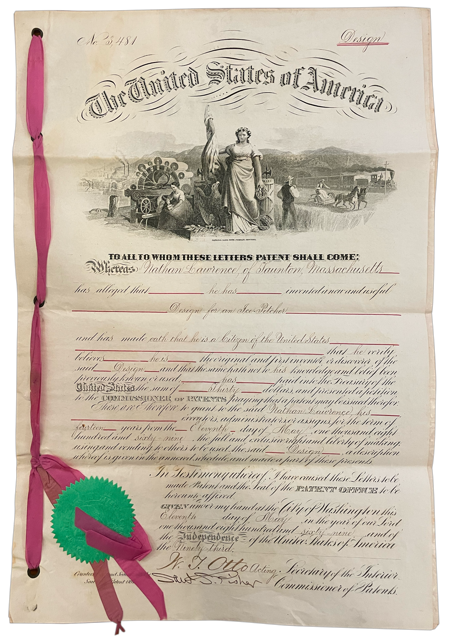 No. 3,481
Design
The United States of America
TO ALL TO WHOM THESE LETTERS PATENT SHALL COME:
Whereas Nathan Lawrence, of Taunton, Massachusetts
has alleged that he has invented a new and useful
Design for an Ice-Pitcher
and has made oath that he is a Citizen of the United States
that he verily
believes he is the original and first inventor or discoverer of the
said Design and that the same hath not to his knowledge and belief been
previously known or used has paid into the Treasury of the
United States the sum of thirty dollars and presented a petition
to the COMMISSIONER of PATENTS, praying that a patent may be issued therefor
These are Therefore to grant to the said Nathan Lawrence, his
executors, administrators or assigns for the term of
years from the Eleventh day of May one thousand eight
hundred and sixty nine the full and exclusive right and liberty of making,
using and vending to others to be used, the said Design a description
whereof is given in the annexed schedule and made a part of these presents
In Testimony whereof I have caused these Letters to be
made Patent and the Seal of the PATENT OFFICE to be
hereunto affixed
GIVEN under my hand at the City of Washington this
Eleventh day of May in the year of our Lord
one thousand eight hundred and sixty nine and of
the Independence of the United States of America
the Ninety Third.
W. T. Otto Acting Secretary of the Interior.
Saml S. Fisher Commissioner of Patents.